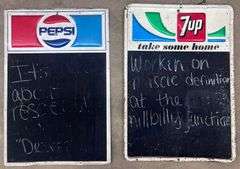 PEPSI
It's
about
7up
take some home
Workin on
muscle definition
at the
hillbilly junction